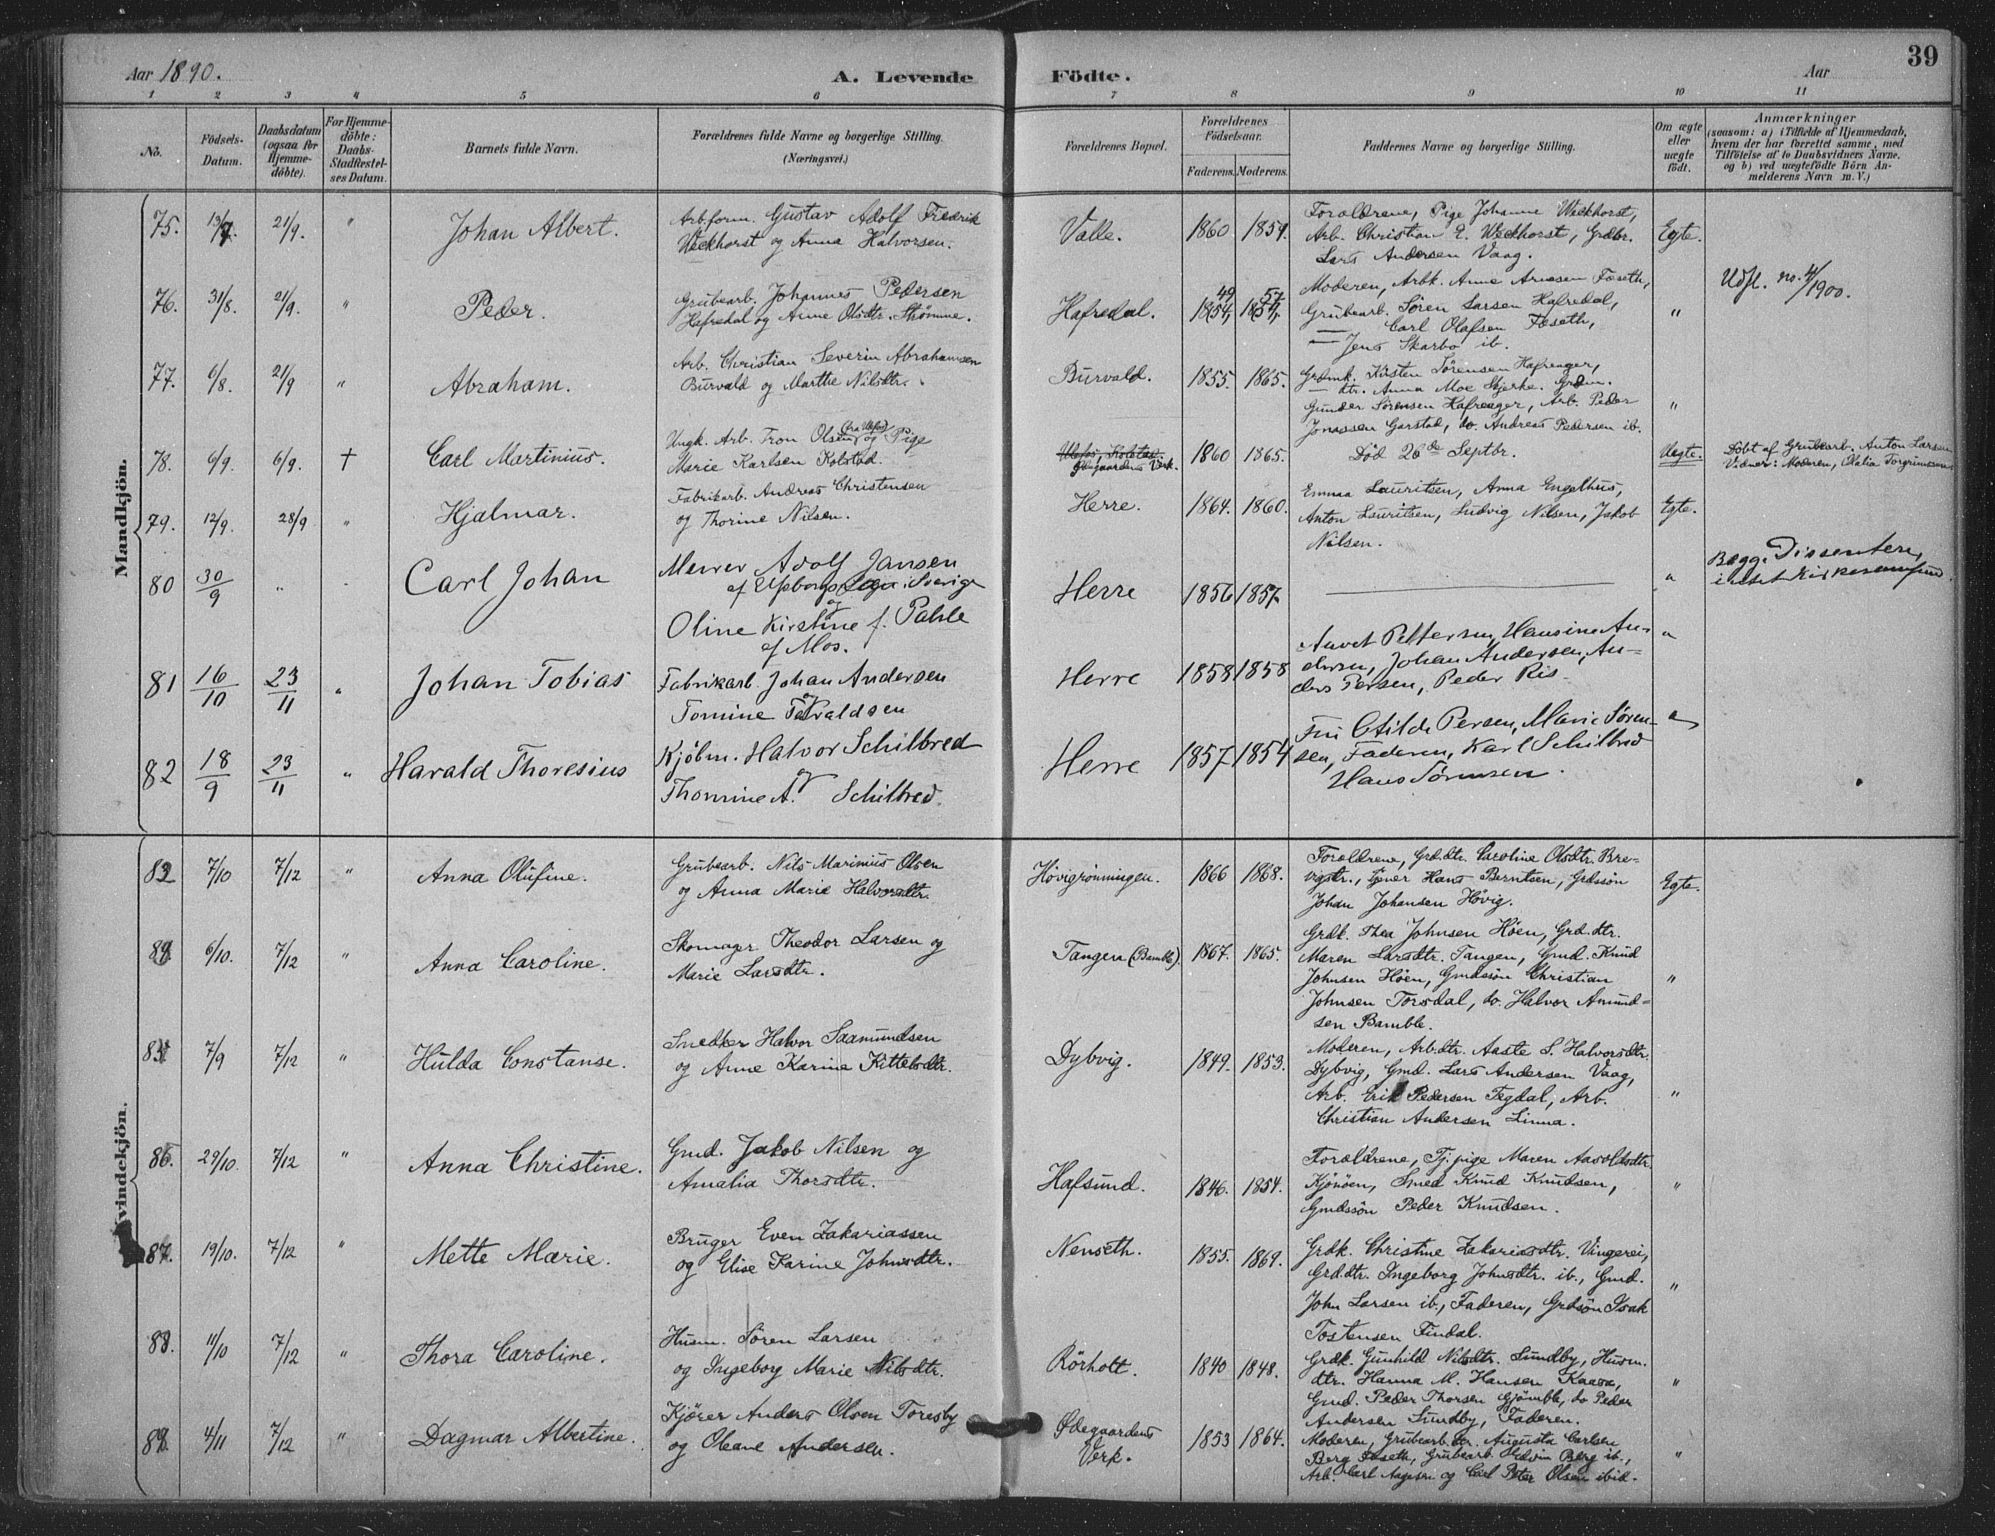 39
Aar 1890.
A. Levende Födte.
Aar
1 2 3 4 5 6 7 8 9 10 11
No.
Födsels-
Datum.
Daabsdatum
(ogsaa for
Hjemme-
döbte).
For Hjemme-
döbte:
Daabs-
Stadfæstel-
ses Datum.
Barnets fulde Navn.
Forældrenes fulde Navne og borgerlige Stilling.
(Næringsvei.)
Forældrenes Bopæl.
Forældrenes
Födselsaar.
Faderens. Moderens.
Faddernes Navne og borgerlige Stilling.
Om ægte
eller
uægte
født.
Anmærkninger
(saasom: a) i Tilfælde af Hjemmedaab,
hvem der har forrettet samme, med
Tilföielse af to Daabsvidners Navne.
og b) ved uægtefödte Börn An-
melderens Navn m. V.)
Mandkjön.
75. 13/7 21/9. " Johan Albert.
Arbform. Gustav Adolf Fredrik
Weckhorst og Anna Halvorsen.
Valle. 1860 1859.
Forældrene, Pige Johanne Weckhorst,
Arb. Christian E. Weckhorst, Grdbr.
Lars Andersen Vaag.
Egte.
76. 31/8. 21/9. " Peder.
Grubearb. Johannes Pedersen
Hafredal og Anne Olsdtr. Strömme.
Hafredal. 49 57
1854, 1854,
Moderen, Arbk. Anne Arnesen Foseth,
Grubearb. Sören Larsen Hafredal,
— Carl Olafsen Foseth,
— Jens Skarbo ib.
"
Udfl. no. 4/1900.
77. 6/8. 21/9 " Abraham.
Arb. Christian Severin Abrahamsen
Burvald og Marthe Nilsdtr.
Burvald. 1855. 1865.
Grdmk. Kirsten Sörensen Hafreager,
— dtr. Anna Moe Stjerke. Grdm.
Gunder Sørensen Hafreager, Arb. Peder
Jonassen Garstad, do. Andreas Pedersen ib.
"
78. 6/9. 6/9. † Carl Martinius.
Ungk. Arb. Tron Olsen (fra Ulefos) og Pige
Marie Karlsen Kolstad.
Ulefos, Kolstad.
Ødegaardens Verk.
1860 1865.
Død 26de Septbr.
Uegte.
Döbt af Grubearb. Anton Larsen
Vidner: Moderen, Olatia Torgrimssen
79. 12/9. 28/9 " Hjalmar.
Fabrikarb. Andreas Christensen
og Thorine Nilsen.
Herre. 1864. 1860.
Emma Lauritsen, Anna Engelhus,
Anton Lauritsen, Ludvig Nilsen, Jakob
Nilsen.
Egte.
80 30/9 " Carl Johan
Murer Adolf Jansen
af Elfsborgs Læn i Sverige
og
Oline Kirstine f. Pahle
af Mos.
Herre 1856 1857
"
Begge Dissentere,
81 16/10 23/11 " Johan Tobias
Fabrikarb. Johan Andersen
og
Tomine Torvaldsen
Herre 1858 1858
Anvet Pettersen, Hansine An-
dersen, Johan Andersen, An-
ders Persen, Peder Ris
"
82 18/9 23/11 " Harald Thoresius
Kjøbm. Halvor Schilbred
og
Thomine A. Schilbred
Herre 1857 1854
Fru Otilde Persen, Marie Søren-
sen, Faderen, Karl Schilbred
Hans Sørensen.
"
Kvindekjön.
83 7/10 7/12 " Anna Olufine.
Grubearb. Nils Marinius Olsen
og Anna Marie Halvorsdtr.
Hövigrönningen. 1866 1868.
Forældrene, Grd.dtr. Caroline Olsdtr. Bre-
vigstr., Tjener Hans Berntsen, Grdssön
Johan Johansen Hövig.
Egte.
84. 6/10. 7/12 " Anna Caroline.
Skomager Theodor Larsen og
Marie Larsdtr.
Tangen (Bamble). 1867. 1865.
Grdk. Thea Johnsen Höen, Grd.dtr.
Maren Larsdtr. Tangen, Gmd. Knud
Johnsen Höen, Gmdssön Christian
Johnsen Torsdal, do. Halvor Amund-
sen Bamble.
"
85. 7/9 7/12 " Hulda Constanse.
Snedker Halvor Saamundsen
og Anne Karine Kittelsdtr.
Dybvig. 1849. 1853.
Moderen, Arb.dtr. Aaste S. Halvorsdtr.
Dybvig, Gmd. Lars Andersen Vaag,
Arb. Erik Pedersen Tegdal, Arb.
Christian Andersen Linna.
"
86. 29/10. 7/12 " Anna Christine.
Gmd. Jakob Nilsen og
Amalia Thorsdtr.
Hafsund. 1846. 1854.
Forældrene, Tj.pige Maren Aasoldsdtr.
Kjönöen, Smed Knud Knudsen,
Gmdssön Peder Knudsen.
"
87. 19/10. 7/12 " Mette Marie.
Bruger Even Zakariassen
og Elise Karine Johnsdtr.
Nenseth. 1855. 1869.
Grdk. Christine Zakariasdtr. Vingerei,
Grd.dtr. Ingeborg Johnsdtr. ib., Gmd.
John Larsen ib., Faderen, Grdsön Isak
Tostensen Findal.
"
88. 11/10 7/12 " Thora Caroline.
Husm. Sören Larsen
og Ingeborg Marie Nilsdtr.
Rörholt. 1840 1848.
Grdk. Gunhild Nilsdtr. Sundby, Husm.
dtr. Hanna M. Hansen Kaasa,
Gmd. Peder Thorsen Gjömble, do Peder
Andersen Sundby, Faderen.
"
89. 4/11 7/12 " Dagmar Albertine.
Kjörer Anders Olsen Toresby
og Oleane Andersen.
Ødegaardens
Verk.
1853 1864.
Moderen, Grubearb.dr. Augusta Carlsen
Berg Foseth, Grubearb. Edvin Berg ib.,
Arb. Carl Aagesen og Carl Peter Olsen ibid.
"